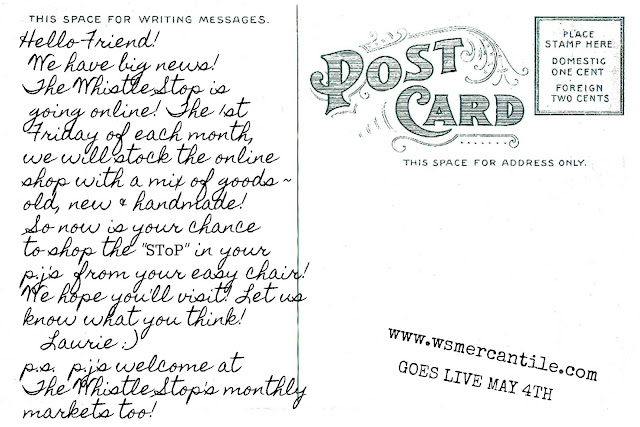 THIS SPACE FOR WRITING MESSAGES.
Hello Friend!
We have big news!
The Whistle Stop is
going online! The 1st
Friday of each month,
we will stock the online
shop with a mix of goods ~
old, new & handmade!
So now is your chance
to shop the "SToP" in your
p.j.'s from your easy chair!
We hope you'll visit! Let us
know what you think!
Laurie :)
p.s. p.j.'s welcome at
The Whistle Stop's monthly
markets too!
POST CARD
PLACE
STAMP HERE
DOMESTIC
ONE CENT
FOREIGN
TWO CENTS
THIS SPACE FOR ADDRESS ONLY.
www.wsmercantile.com
GOES LIVE MAY 4TH